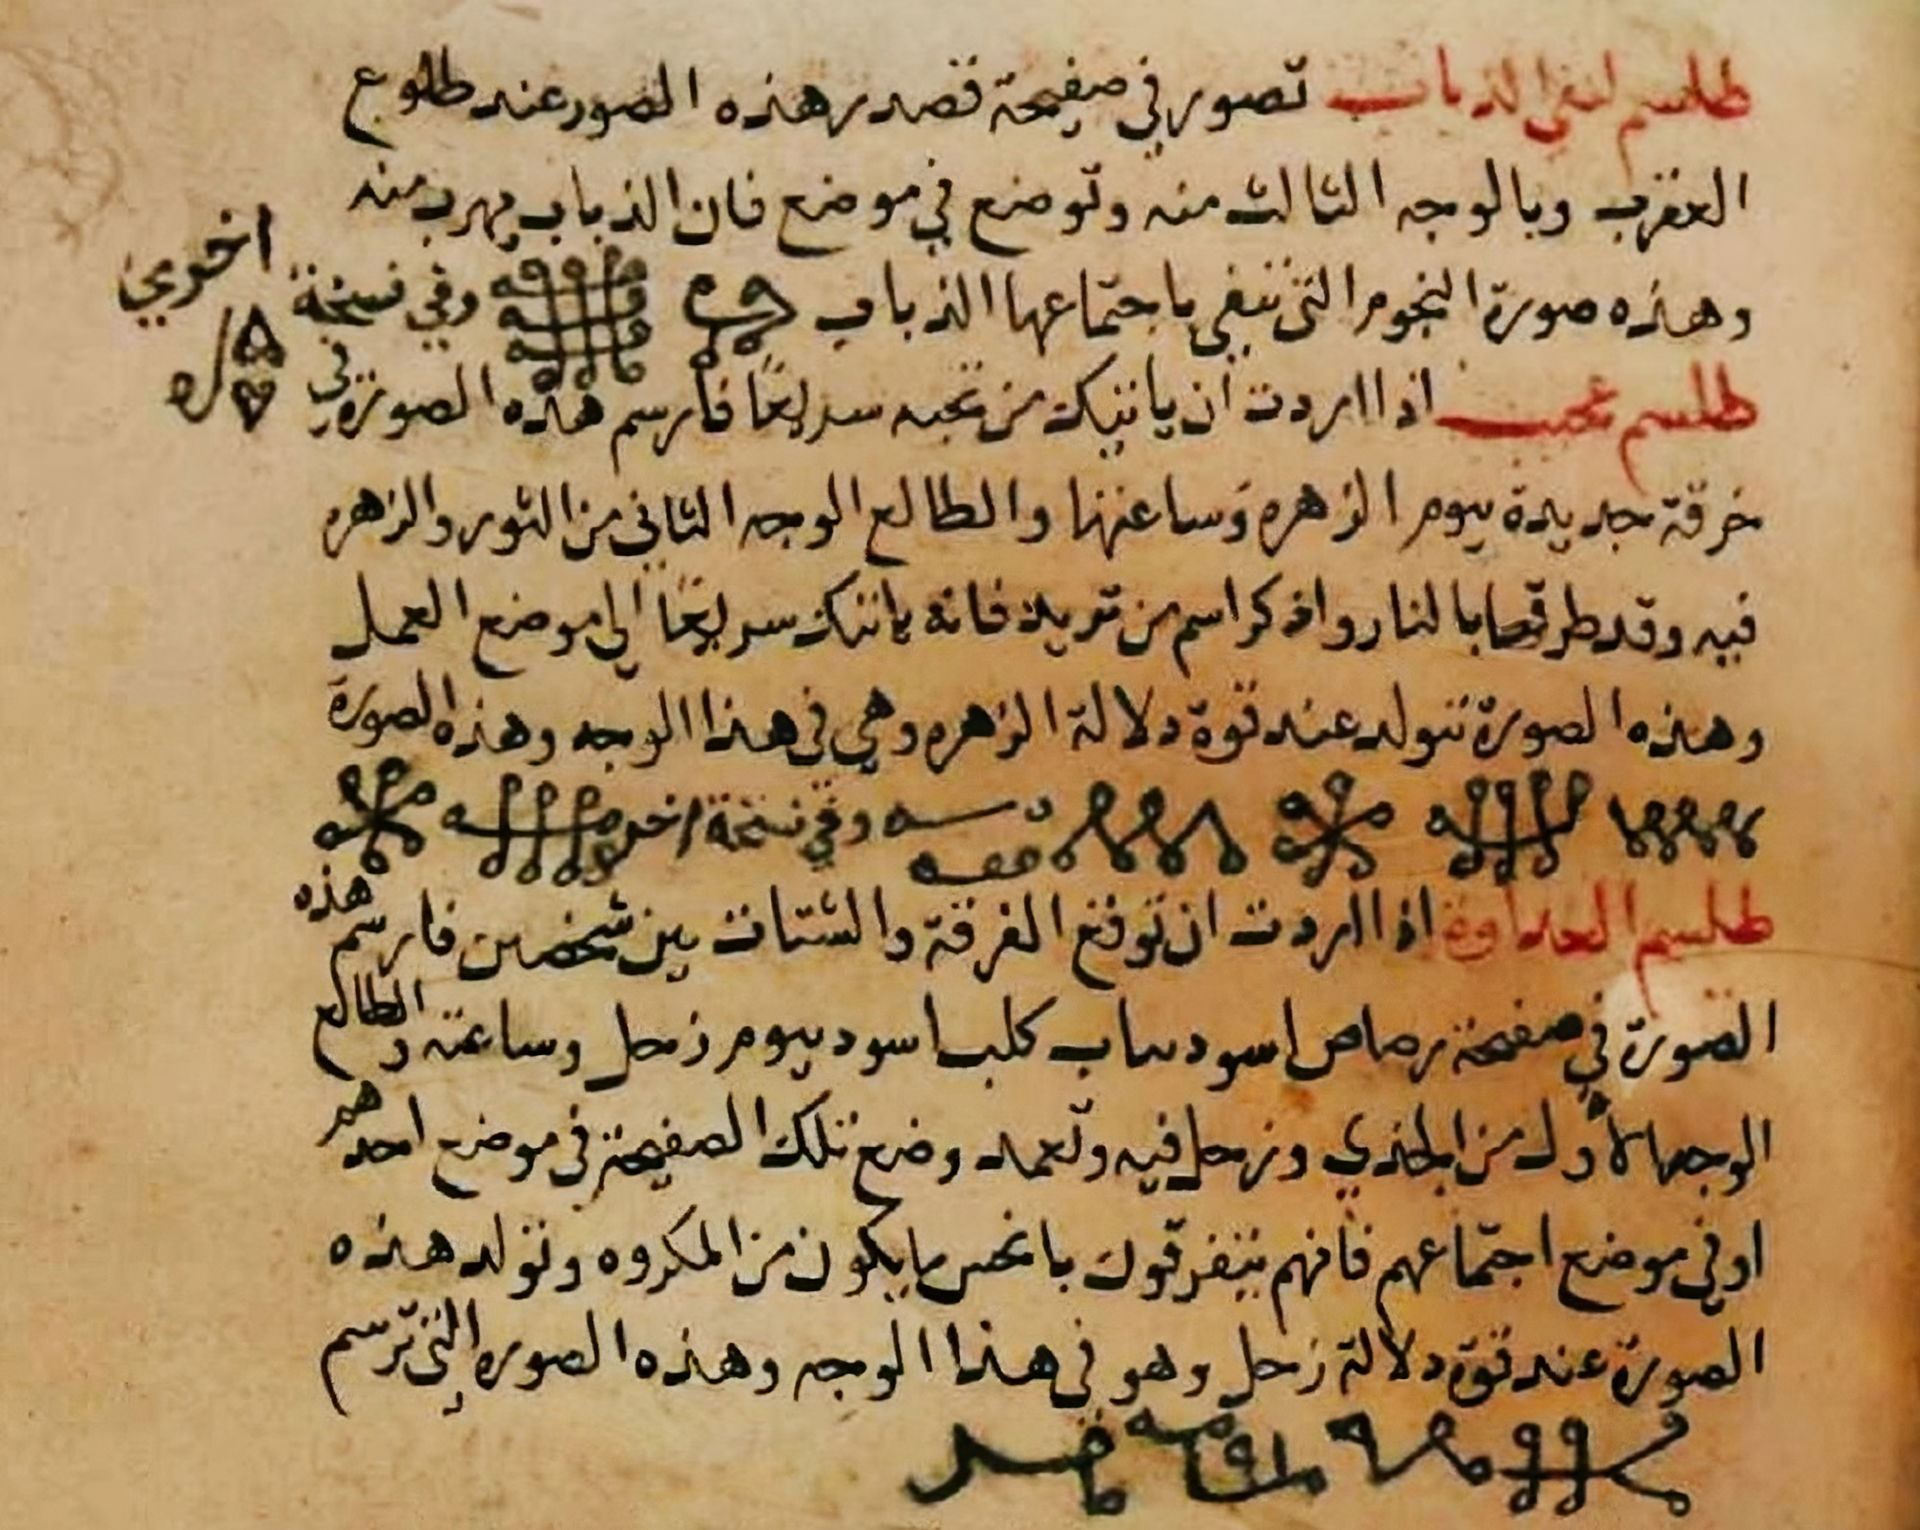 طلسم لنفي الذباب تصور في صفيحة قصدير هذه الصور عند طلوع
العقرب وبالوجه الثالث منه وتوضع في موضع فان الذباب يهرب منه
وهذه صورة النجوم التي تنفي باجتماعها الذباب وفي نسخة اخري
طلسم عجيب اذا اردت ان ياتيك من تحبه سريعًا فارسم هذه الصورة في
خرقة جديدة بيوم الزهره وساعتها والطالع الوجه الثاني من الثور والزهره
فيه وقد طرقها بالنار واذكر اسم من تريد فانه ياتيك سريعًا الي موضع العمل
وهذه الصورة تتولد عند قوة دلالة الزهره وهي في هذا الوجه وهذه الصورة
وفي نسخة اخره
طلسم العداوة اذا اردت ان توقع الفرقة والشتات بين شخصين فارسم هذه
الصورة في صفيحة رصاص اسود بناب كلب اسود بيوم زحل وساعته والطالع
الوجه الأول من الجدي وزحل فيه وتعمد وضع تلك الصفيحة في موضع احدهم
او في موضع اجتماعهم فانهم يتفرقون بانحس ما يكون من المكروه وتولد هذه
الصورة عند قوة دلالة زحل وهو في هذا الوجه وهذه الصوره التي ترسم